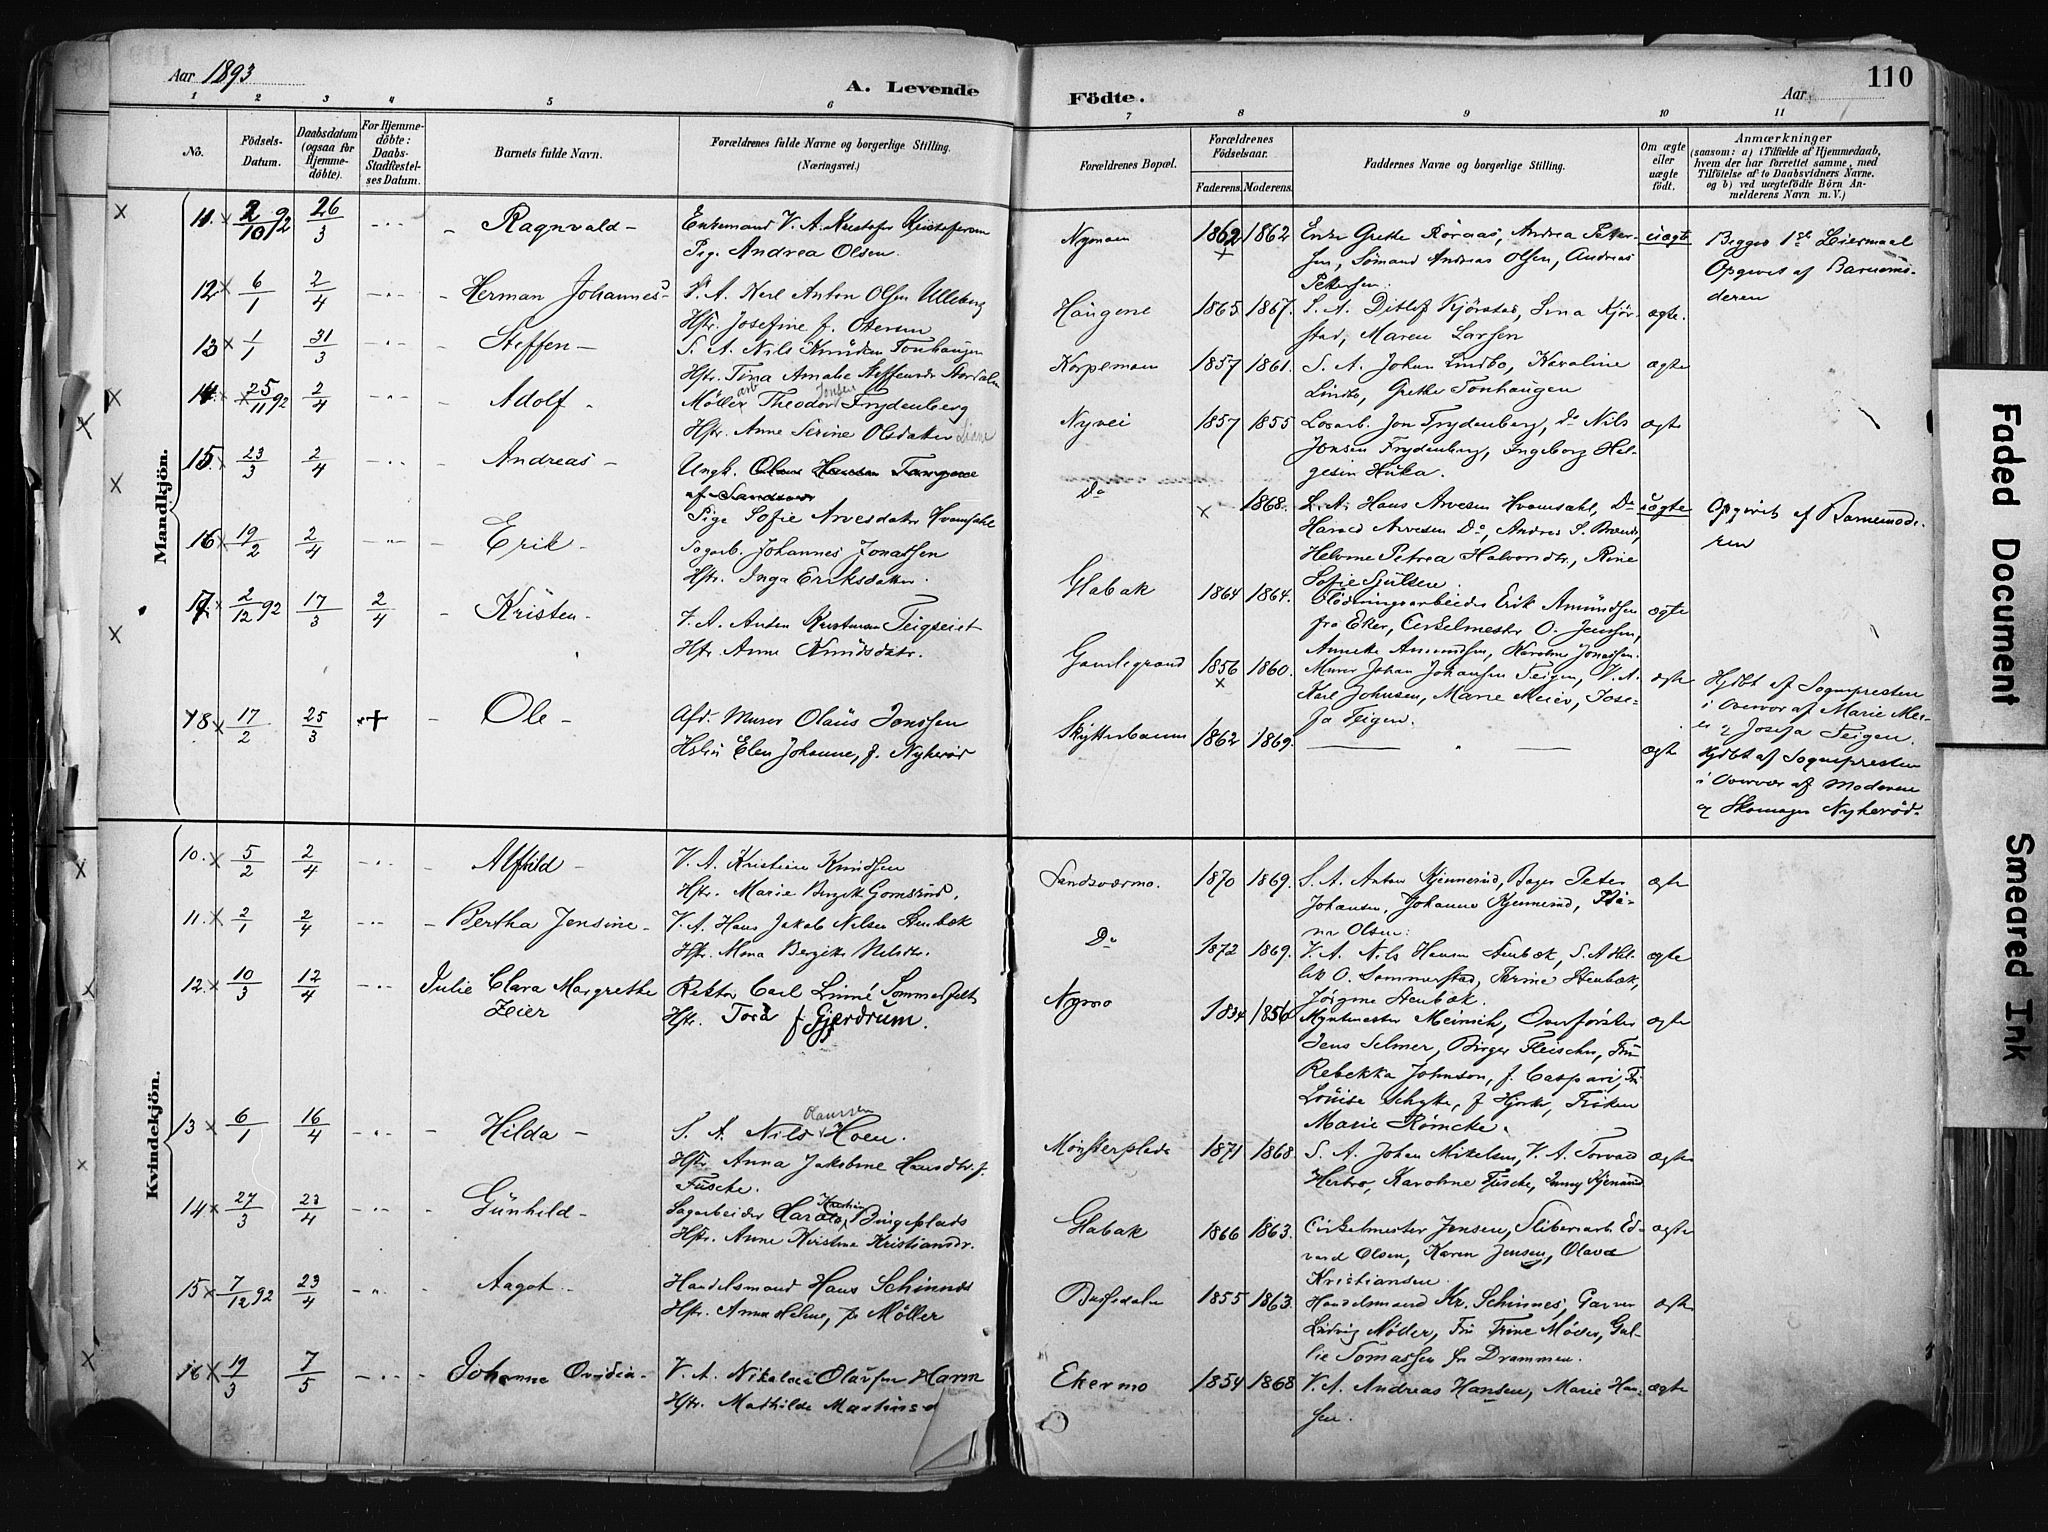 Aar 1893
A. Levende
Födte.
Aar
110
1 2 3 4 5 6 7 8 9 10 11
No.
Födsels-Datum.
Daabsdatum (ogsaa for Hjemmedöbte).
For Hjemmedöbte: Daabs-Stadfæstelses Datum.
Barnets fulde Navn.
Forældrenes fulde Navne og borgerlige Stilling. (Næringsvei.)
Forældrenes Bopæl.
Forældrenes Födselsaar.
Faderens. Moderens.
Faddernes Navne og borgerlige Stilling.
Om ægte eller uægte födt.
Anmærkninger
(saasom: a) i Tilfælde af Hjemmedaab, hvem der har forrettet samme, med Tilföielse af to Daabsvidners Navne. og b) ved uægtefödte Börn Anmelderens Navn m. V.)
Mandkjön.
11. 2/10 92 26/3 Ragnvald
Enkemand V. A. Kristofer Kristofersen
Pige Andrea Olsen
Nymoen 1862 1862
Enke Grethe Röraas, Andrea Petersen, Sömand Andreas Olsen, Andreas Pettersen.
uægte
Begges 1ste Leiermaal
Opgivet af Barnemoderen
12 6/1 2/4 Herman Johannes
V. A. Karl Anton Olsen Ulleberg
Hstr. Josefine f. Olsen
Haugene 1865 1867.
S. A. Ditlef Kjörstad, Lina Kjörstad, Maren Larsen
ægte.
13 1/1 31/3 Steffen
S. A. Nils Knudsen Tonhaugen
Hstr. Tina Amalie Steffensdr
Korpemoen 1857 1861.
S. A. Johan Lindbo, Karoline Lindbo, Grethe Tonhaugen
ægte
14 25/11 92 2/4 Adolf
Möllerarb Theodor Jonsen Frydenberg
Hstr. Anne Serine Olsdatter
Nyvei 1857 1855
Losarb. Jon Frydenberg, Do Nils Jonsen Frydenberg, Ingeborg Helgesen Huka.
ægte
15 23/3 2/4 Andreas
Ungk. Olaus Hansen Tangene
af Sandsvær
Pige Sofie Arvesdatter Hvamsahl
Do 1868.
L. A. Hans Arvesen Hvamsahl, Do Harald Arvesen Do, Andreas S. Helene Petrea Halvorsdtr, Sofie
uægte
Opgivet af Barnemoderen
16 19/2 2/4 Erik
Sagarb. Johannes Jonassen
Hstr. Inga Eriksdatter.
Glabak 1864 1864.
Erik Amundsen fra Eker, Cirkelmester O. Jensen, Annette Amundsen, Karoline Jonassen.
ægte
17. 2/12 92 17/3 2/4 Kristen
V. A. Anton Kristensen Teigseiet
Hstr. Anne Knudsdatr.
Gamlegrænd 1856 1860.
Murer Johan Johansen Teigen, V. A. Karl Johnsen, Marie Meier, Josefa Teigen.
ægte
Hjdbt af Sognepresten
i Overvær af Marie Meier og Josefa Teigen.
18 17/2 25/3 Ole
Afd. Murer Olaus Jonssen
Hstru Elen Johanne, f. Nykerød
Skytterbanen 1862 1869.
ægte
Hjdbt af Sognepresten
i Overvær af Moderen
og Skomager Nykeröd.
Kvindekjön.
10. 5/2 2/4 Alfhild
V. A. Kristian Knudsen
Hstr. Marie Birgitte Gomsrud.
Sandsværmo. 1870 1869.
S. A. Anton Kjennerud, Bager Peter Johansen, Johanne Kjennerud, Olsen.
ægte
11. 2/1 2/4 Bertha Jensine
V. A. Hans Jakob Nilsen Stenbæk
Hstr. Mona Bergitte Nilsdtr.
Do 1872 1869.
V. A. Nils Hansen Stenbæk, S. A. O. Sommerstad, Trine Stenbæk, Jörgine Stenbæk.
ægte
12. 10/3 12/4 Julie Clara Margrethe Zeier
Rektor Carl Linné Sommerfelt
Hstr. Tora f Gjerdrum.
Nymo 1854 1856
Myntmester Meinich, Overförster Jens Selmer, Birger Fleischer, Fru Rebekka Johnson, f. Caspari, Fr. Louise Schytte, f Hjorth, Fröken Marie Römcke.
ægte
13 6/1 16/4 Hilda
S. A. Nils Olaussen Hoen.
Hstr Anna Jakobine Hansdtr. f. Fusche.
Mönsterplads 1871 1868.
S. A. Johan Mikelsen, V. A. Torvald Herbro, Karoline Fusche, Anny Kjennerud
ægte
14 27/3 23/4 Günhild
Sagarbeider Harald Kristian Bingeplads
Hstr. Anne Kristine Kristiansdr.
Glabak 1866 1863.
Cirkelmester Jensen, Sliberiarb Edvard Olsen, Karen Jensen, Olava Kristiansen
ægte
15 7/12 92 23/4 Aagot
Handelsmand Hans Schinnes
Hstr. Anna Helene, f. Möller
1855 1863.
Handelsmand Kr. Schinnes, Garver Ludvig Möller, Fru Trine Möller, Tomassen fra Drammen.
ægte
16 19/3 7/5 Johanne Ovidia
V. A. Nikolai Olaussen Havn
Hstr. Mathilde Martinsd
Ekermo 1854 1868
V. A. Andreas Hansen, Marie Hansen.
ægte
Faded Document
Smeared Ink